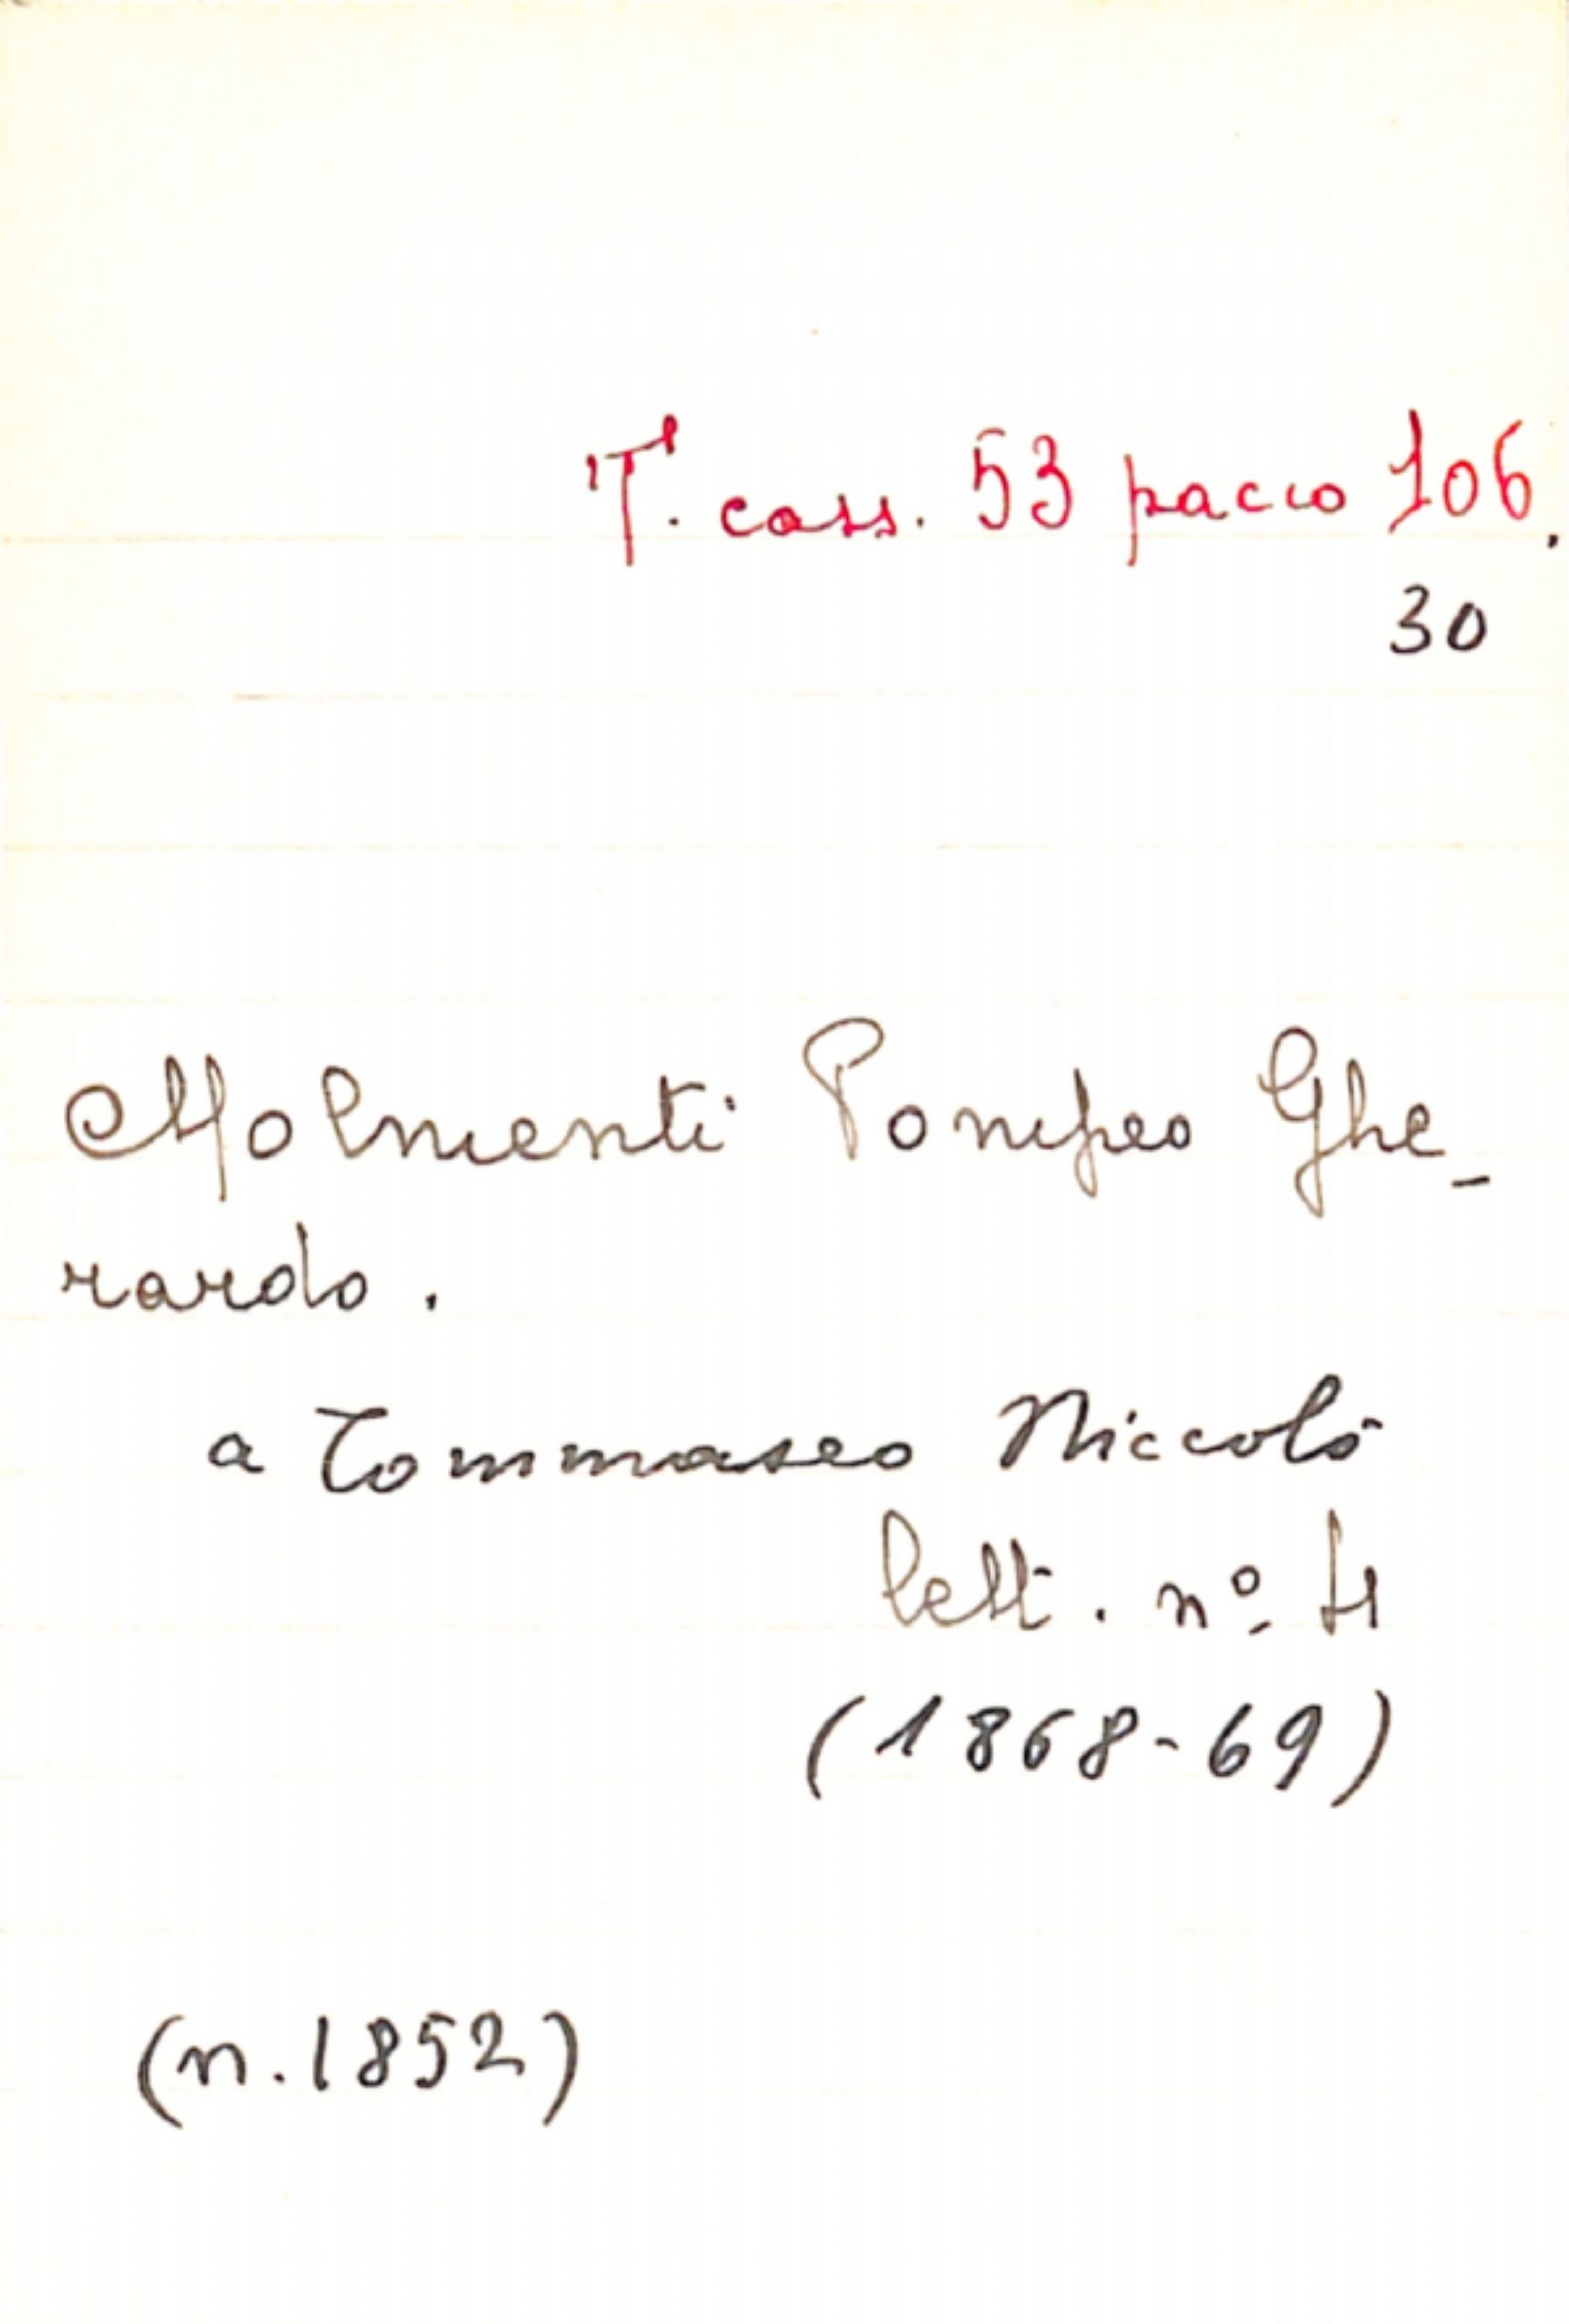 T. cass. 53 pacco 106.
30
Molmenti Pompeo Ghe-
rardo.
a Tommaseo Niccolò
lett. nº 4
(1868-69)
(n. 1852)